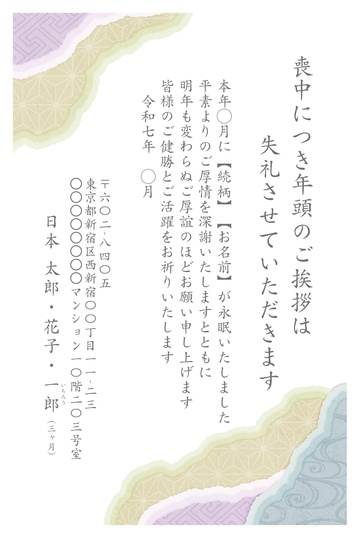 喪中につき年頭のご挨拶は
失礼させていただきます
本年〇月に【続柄】【お名前】が永眠いたしました
平素よりのご厚情を深謝いたしますとともに
明年も変わらぬご厚誼のほどお願い申し上げます
皆様のご健勝とご活躍をお祈りいたします
令和七年 〇月
〒六〇二-八四〇五
東京都新宿区西新宿〇〇丁目一一-二三
〇〇〇〇〇〇マンション一〇階二〇三号室
日本 太郎・花子・一郎(三ヶ月)
いちろう